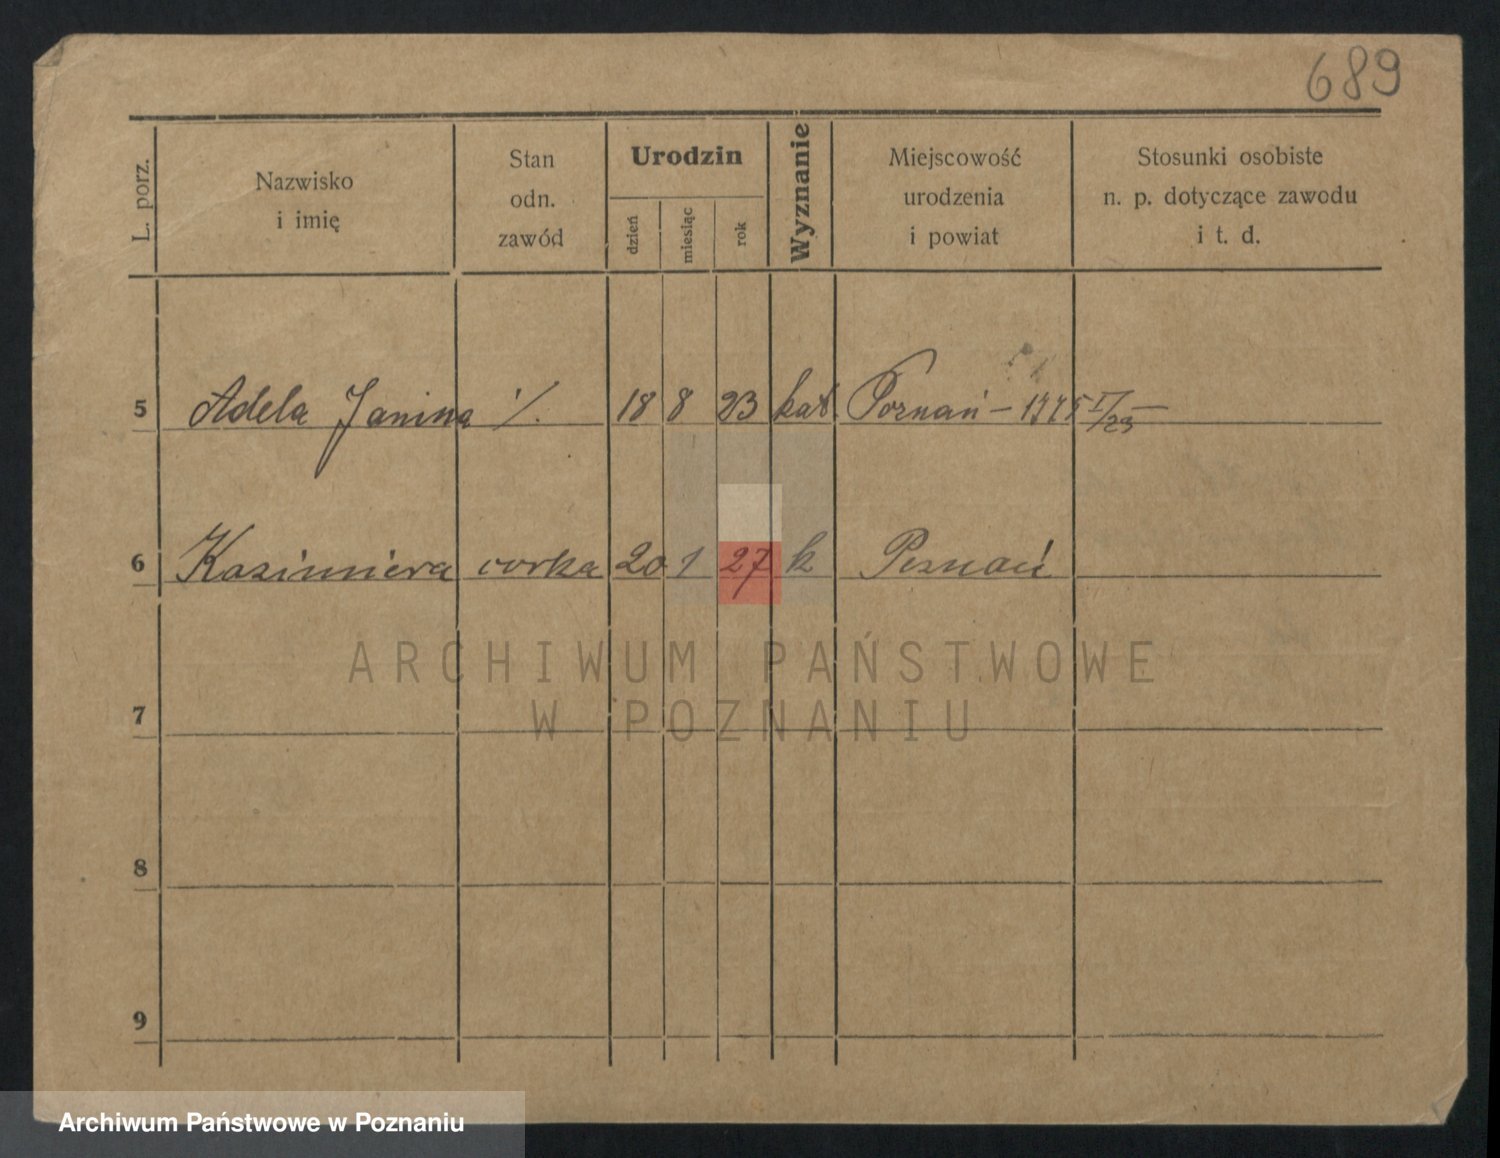 689
L. porz.
Nazwisko
i imię
Stan
odn.
zawód
Urodzin
dzień
miesiąc
rok
Wyznanie
Miejscowość
urodzenia
i powiat
Stosunki osobiste
n. p. dotyczące zawodu
i t. d.
5 Adela Janina ./. 18 8 23 kat Poznań – 1775 I/23 —
6 Kazimiera corka 20 1 27 k Poznań
ARCHIWUM PAŃSTWOWE
W POZNANIU
7
8
9
Archiwum Państwowe w Poznaniu